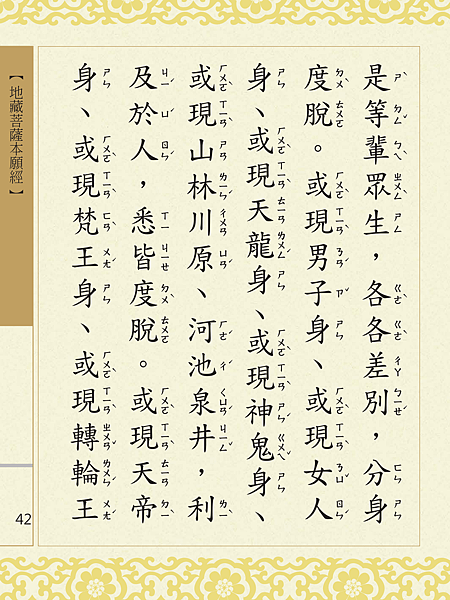 是等輩眾生，各各差別，分身
度脫。或現男子身、或現女人
身、或現天龍身、或現神鬼身、
或現山林川原、河池泉井，利
及於人，悉皆度脫。或現天帝
身、或現梵王身、或現轉輪王
【地藏菩薩本願經】
42